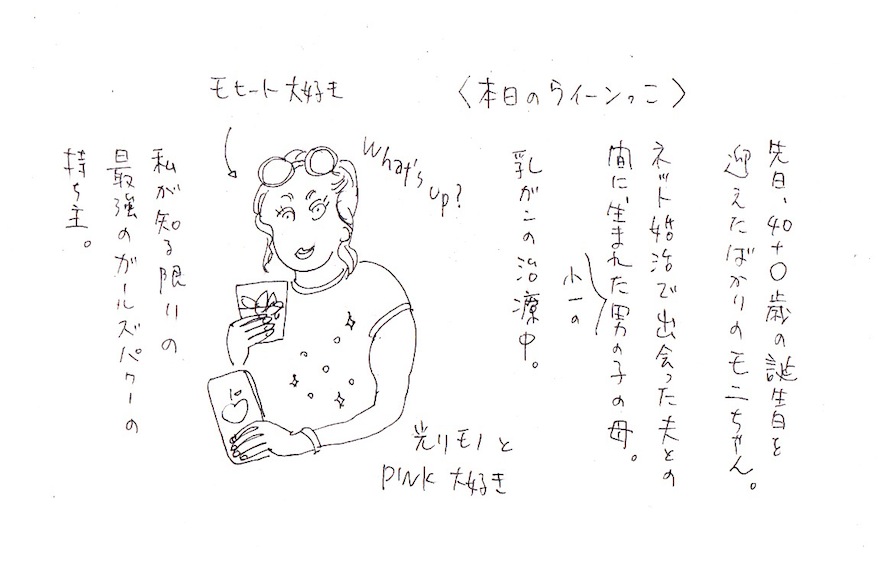 〈本日のクイーンっこ〉
先日、40+0歳の誕生日を
迎えたばかりのモニちゃん。
ネット婚活で出会った夫との
間に生まれた男の子の母。
小一の
乳がんの治療中。
What's up?
モヒート大好き
光りモノと
PINK 大好き
私が知る限りの
最強のガールズパワーの
持ち主。